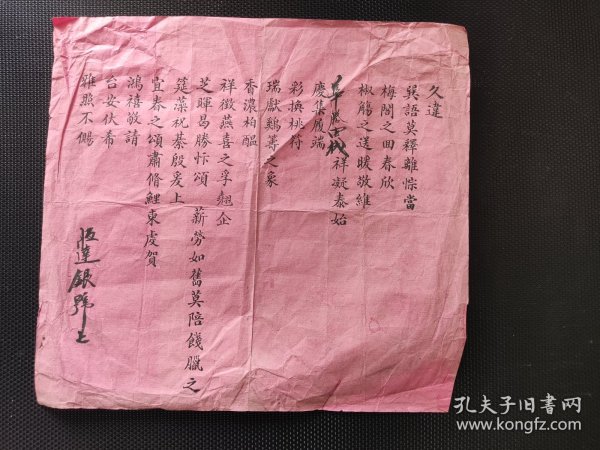 久違
巽語莫釋離悰當
梅閣之回春欣
椒觴之送暖敬維
祥凝泰始
慶集履端
彩換桃符
瑞獻鷄籌之象
香濃柏醖
祥徵燕喜之孚翹企
芝暉曷勝忭頌 薪勞如舊莫陪餞臘之
筵藻祝綦殷爰上
宜春之頌肅脩鯉柬虔賀
鴻禧敬請
台安伏希
雅照不備
恒達銀號上
孔夫子旧书网
www.kongfz.com